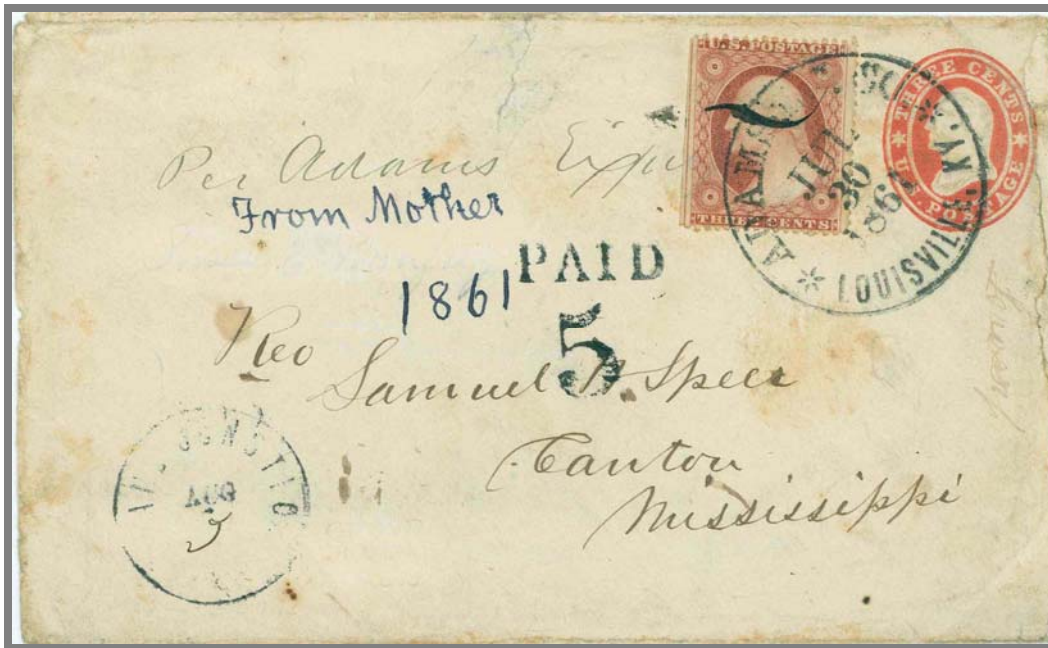 U.S. POSTAGE
THREE CENTS
THREE CENTS
U.S. POSTAGE
JUL
30
LOUISVILLE, KY.
Per Adams
From Mother
PAID
5
1861
Rev
Samuel Speer
Canton
Mississippi
AUG